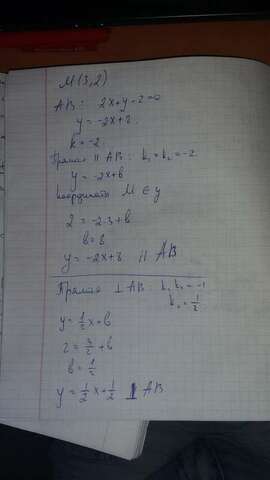 M(3,2)
AB: 2x+y-2=0
y=-2x+2
k=-2
Прямая || AB: k₁=k₂=-2
y=-2x+b
координаты M ∈ y
2=-2·3+b
b=8
y=-2x+8 || AB
Прямая ⊥ AB: k₁k₂=-1
k₂=1/2
y=1/2x+b
2=3/2+b
b=1/2
y=1/2x+1/2 ⊥ AB